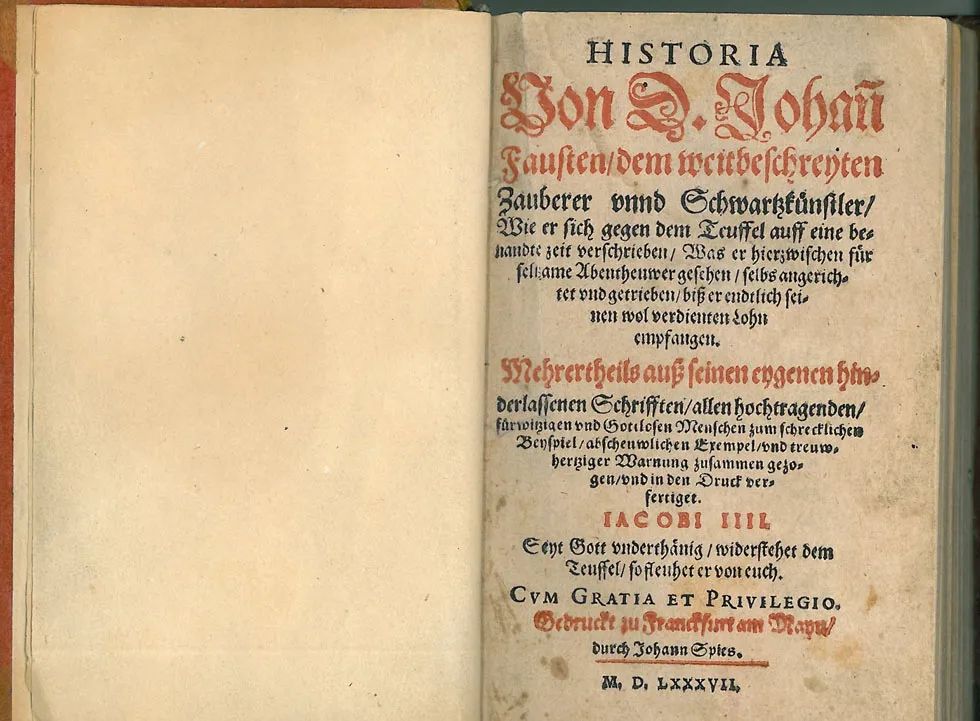 HISTORIA
Von D. Johañ
Fausten/dem weitbeschreyten
Zauberer vnnd Schwartzkünstler/
Wie er sich gegen dem Teuffel auff eine be-
nandte zeit verschrieben/ Was er hierzwischen für
seltzame Abentheuwer gesehen/ selbs angerich-
tet vnd getrieben/ biß er endtlich sei-
nen wol verdienten Lohn
empfangen.
Mehrertheils auß seinen eygenen hin-
derlassenen Schrifften/allen hochtragenden/
fürwitzigen vnd Gottlosen Menschen zum schrecklichen
Beyspiel/abscheuwlichen Exempel/vnd treuw-
hertziger Warnung zusammen gezo-
gen/vnd in den Druck ver-
fertiget.
IACOBI IIII.
Seyt Gott vnderthänig/widerstehet dem
Teuffel/so fleuhet er von euch.
CVM GRATIA ET PRIVILEGIO.
Gedruckt zu Franckfurt am Mayn/
durch Johann Spies.
M. D. LXXXVII.